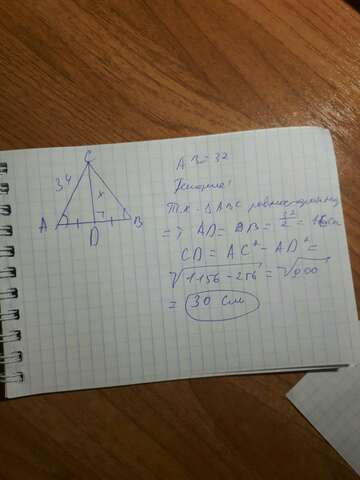 C
34
x
A
B
D
AB=32
Решение:
Т.К. △ABC равносторонний
=> AD = BB = 32/2 = 16см
CD = AC² - AD² =
√1156-256 = √900
= 30 см